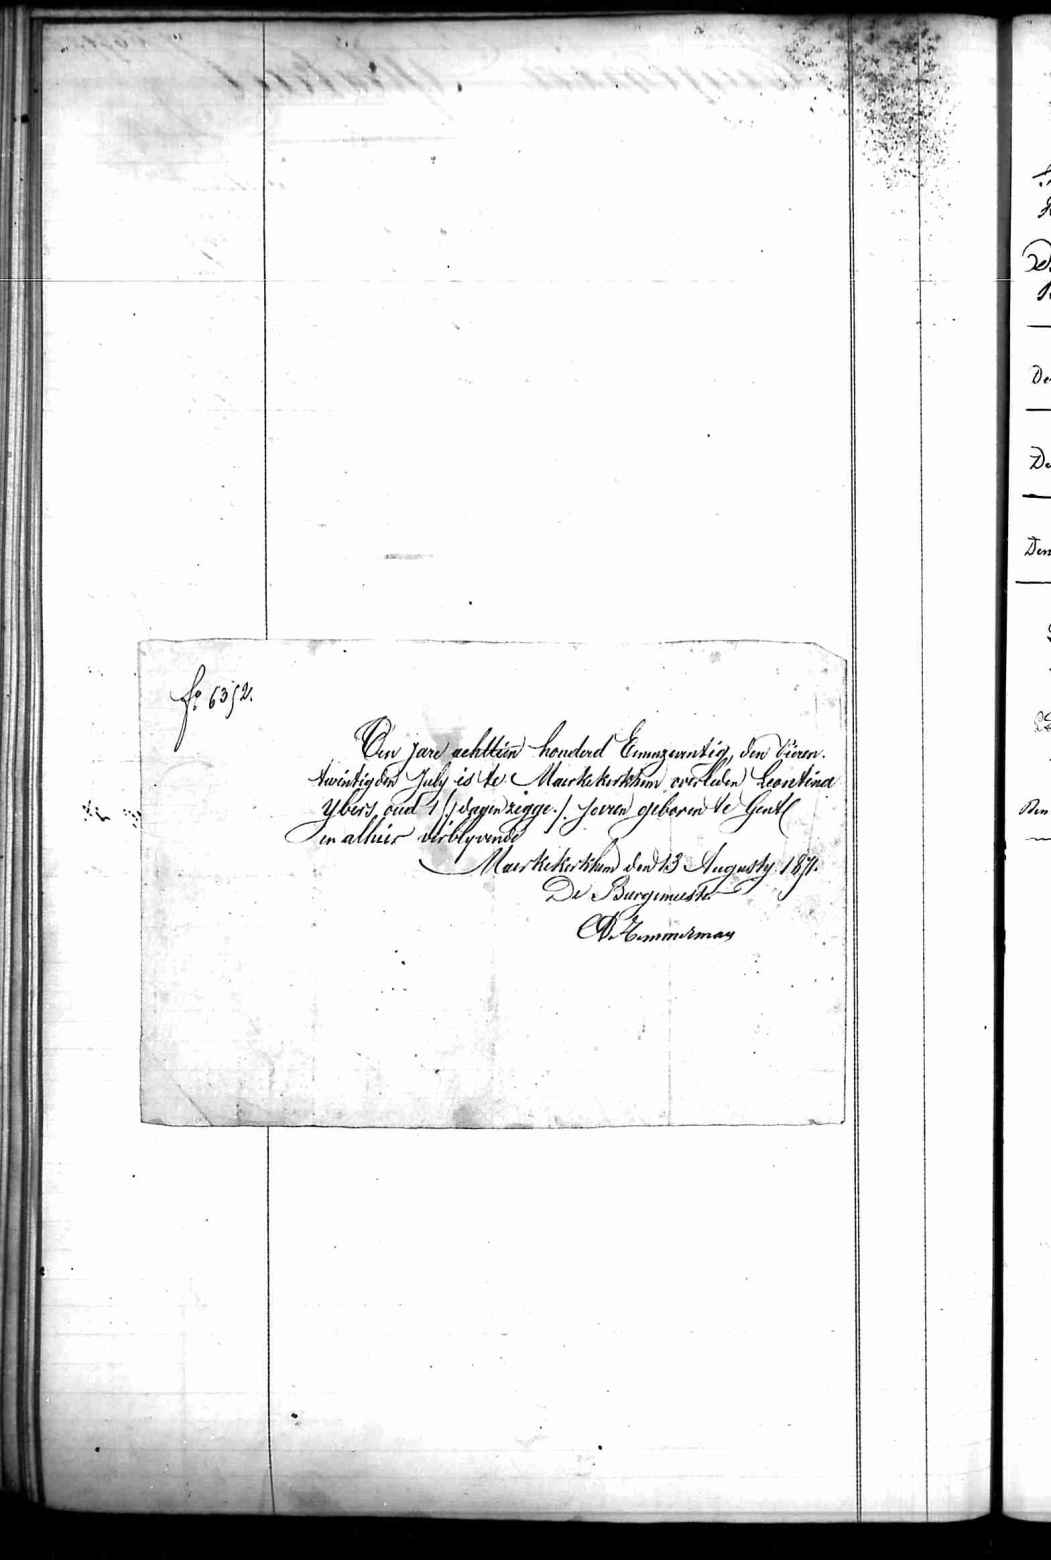 fo. 6352.
Den jare achttien honderd Eenenzeventig, den Vieren-
twintigsten July is te Maerkekerkhem overleden Leontina
Ybers, oud 1 /:/ dagen zegge ./. Jaren geboren te Gent
en alhier verblyvende
Maerkekerkhem den 13 Augusty 1871.
De Burgemeester
Den
Den